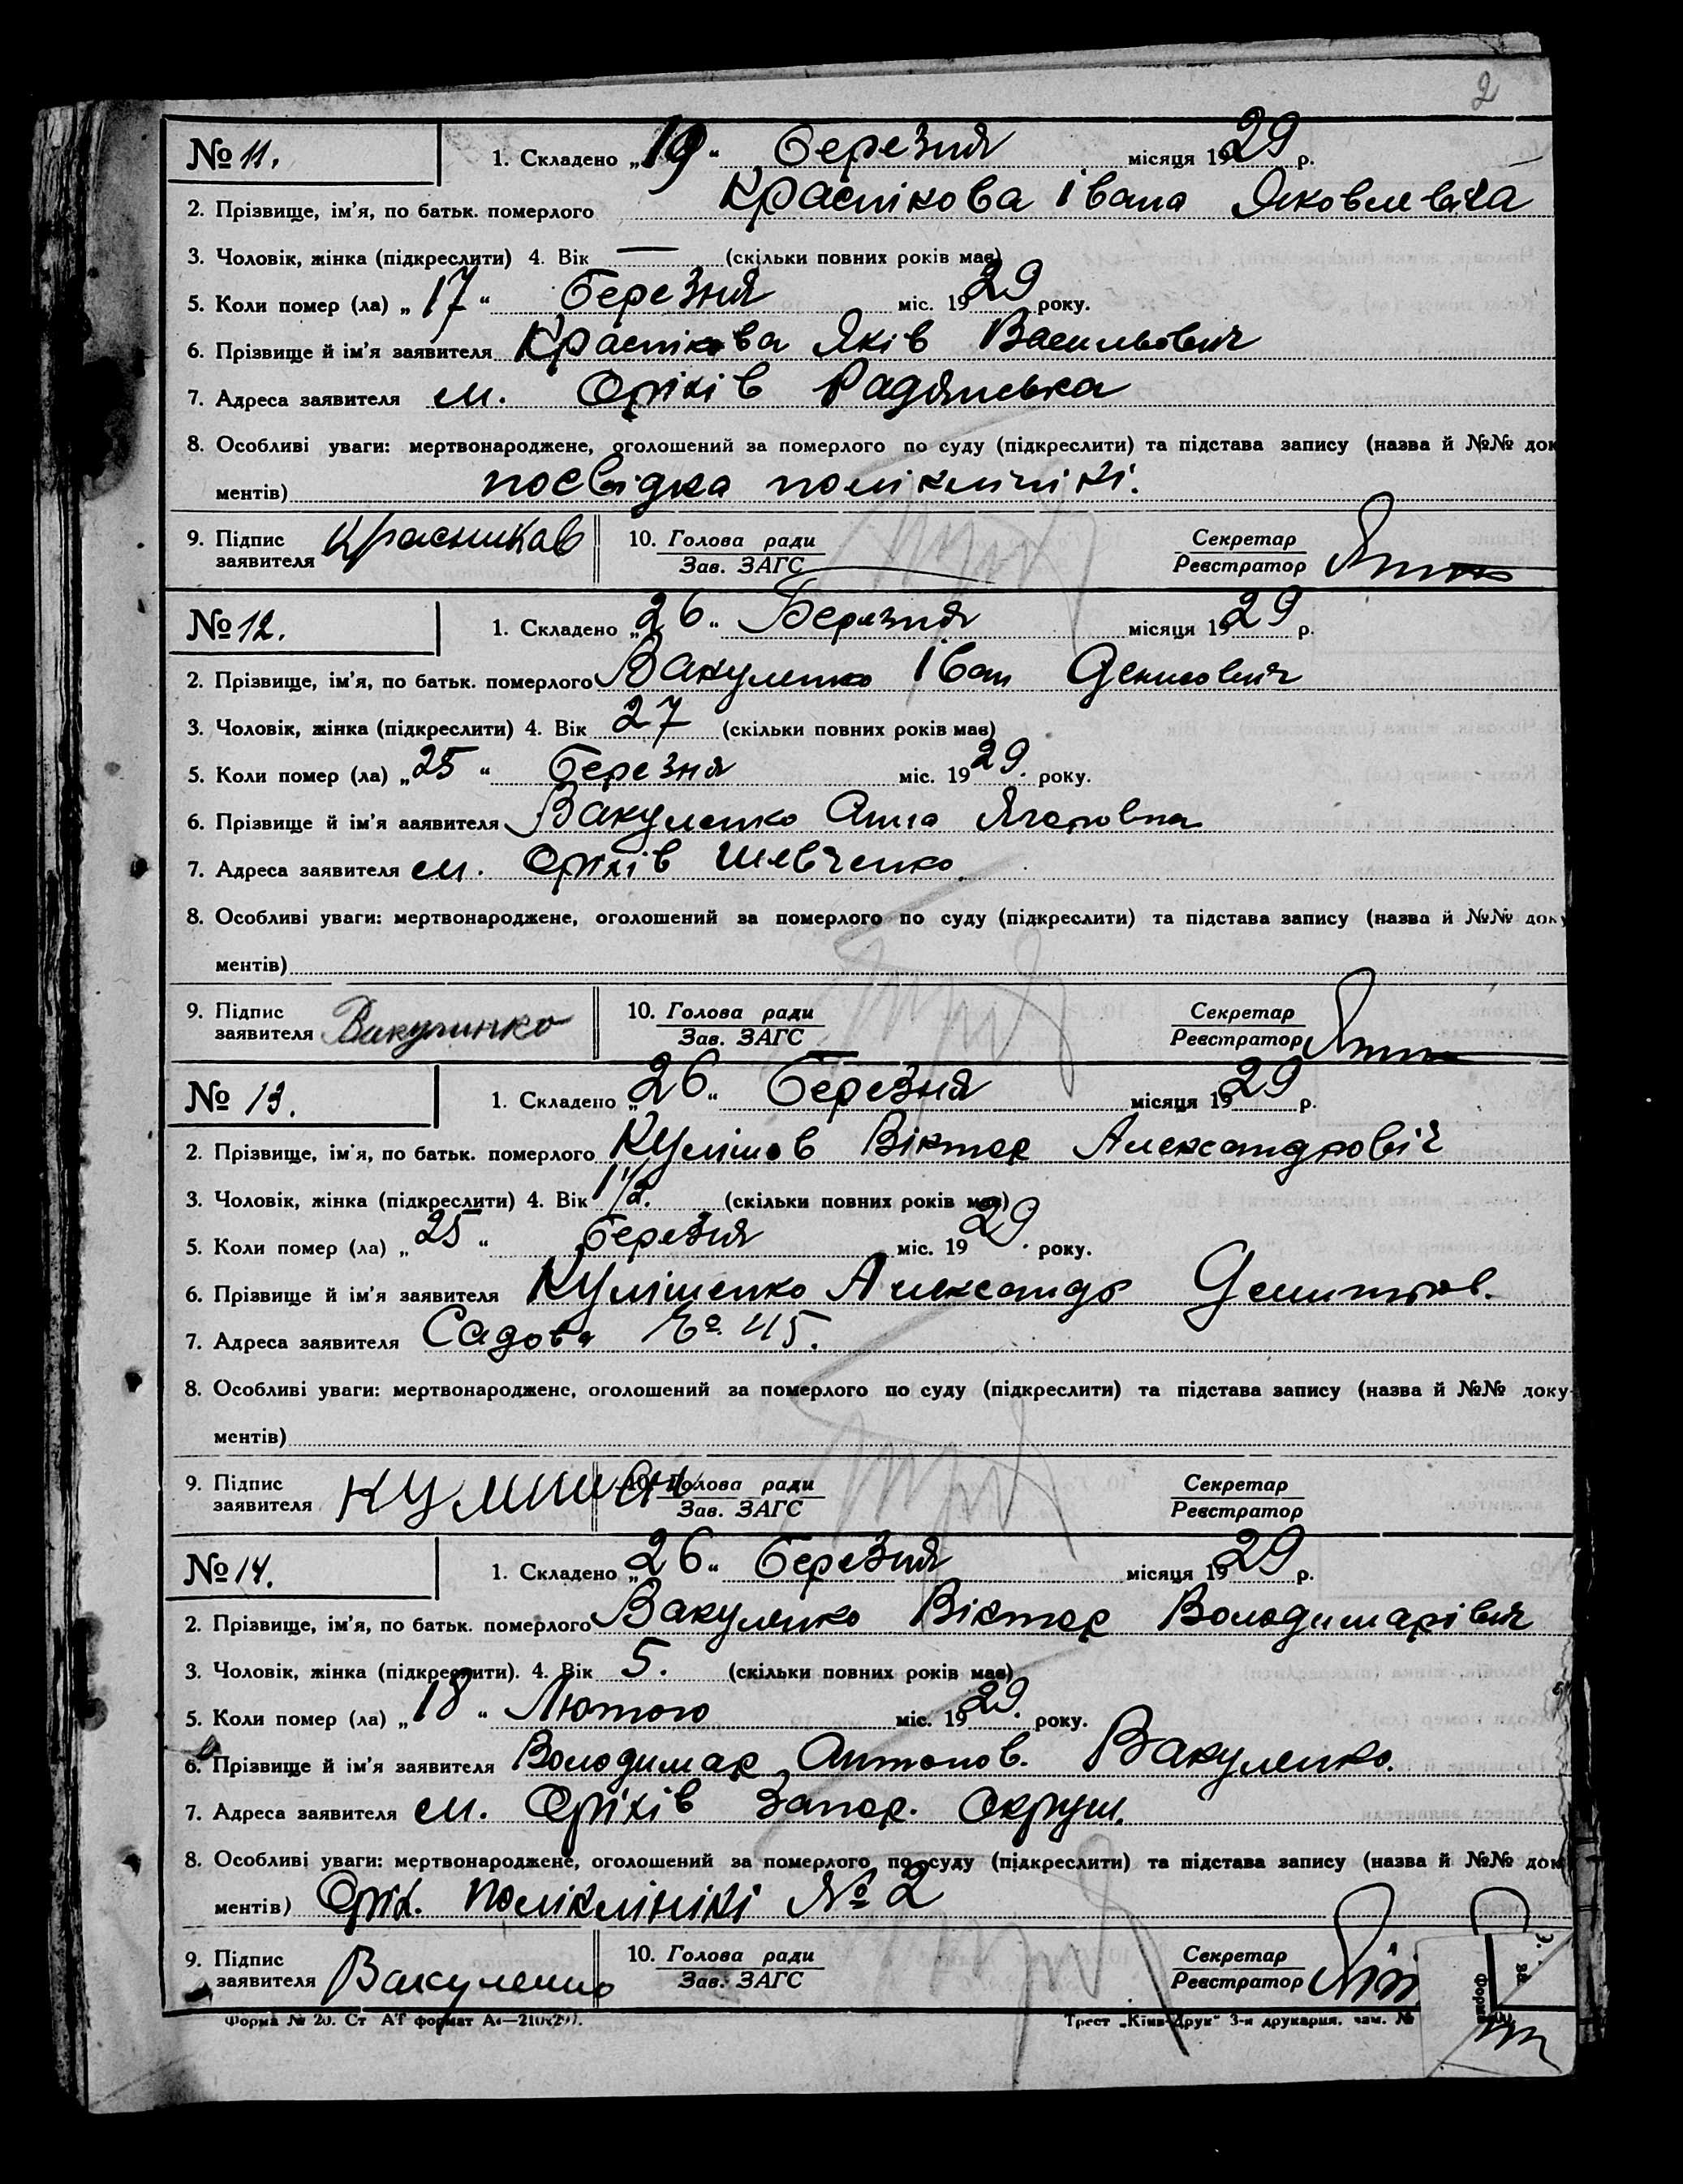 2
№ 11.
1. Складено „19“ березня місяця 1929 р.
2. Прізвище, ім'я, по батьк. померлого Краснікова Івана Яковлевича
3. Чоловік, жінка (підкреслити) 4. Вік — (скільки повних років має)
5. Коли помер (ла) „17“ березня міс. 1929 року.
6. Прізвище й ім'я заявителя Краснікова Яків Васильович
7. Адреса заявителя м. Оріхів Радянська
8. Особливі уваги: мертвонароджене, оголошений за померлого по суду (підкреслити) та підстава запису (назва й №№ док
ментів) посвідка поліклінікі.
9. Підпис заявителя Красникав 10. Голова ради Зав. ЗАГС Секретар Реєстратор
№ 12.
1. Складено „26“ Березня місяця 1929 р.
2. Прізвище, ім'я, по батьк. померлого Вакуленко Іван Денисович
3. Чоловік, жінка (підкреслити) 4. Вік 27 (скільки повних років має)
5. Коли помер (ла) „25“ березня міс. 1929. року.
6. Прізвище й ім'я заявителя Вакуленко Анна
7. Адреса заявителя м. Оріхів Шевченко.
8. Особливі уваги: мертвонароджене, оголошений за померлого по суду (підкреслити) та підстава запису (назва й №№ доку
ментів)
9. Підпис заявителя Вакулинко 10. Голова ради Зав. ЗАГС Секретар Реєстратор
№ 13.
1. Складено „26“ березня місяця 1929 р.
2. Прізвище, ім'я, по батьк. померлого Кулішов Віктор Александровіч
3. Чоловік, жінка (підкреслити) 4. Вік 1 1/2. (скільки повних років має)
5. Коли помер (ла) „25“ березня міс. 1929. року.
6. Прізвище й ім'я заявителя Кулішенко Александр
7. Адреса заявителя Садова № 45.
8. Особливі уваги: мертвонароджене, оголошений за померлого по суду (підкреслити) та підстава запису (назва й №№ доку-
ментів)
9. Підпис заявителя 10. Голова ради Зав. ЗАГС Секретар Реєстратор
№ 14.
1. Складено „26“ березня місяця 1929 р.
2. Прізвище, ім'я, по батьк. померлого Вакуленко Віктор Володимарівич
3. Чоловік, жінка (підкреслити). 4. Вік 5. (скільки повних років має)
5. Коли помер (ла) „18“ Лютого міс. 1929. року.
6. Прізвище й ім'я заявителя Володимар Антонов. Вакуленко.
7. Адреса заявителя м. Оріхів Запор. Округи.
8. Особливі уваги: мертвонароджене, оголошений за померлого по суду (підкреслити) та підстава запису (назва й №№ док
ментів) Оріх. поліклінікі № 2
9. Підпис заявителя Вакуленко 10. Голова ради Зав. ЗАГС Секретар Реєстратор
Форма № 20. Ст АТ формат А4—210х297. Трест „Київ-Друк“ 3-я друкарня, зам. №